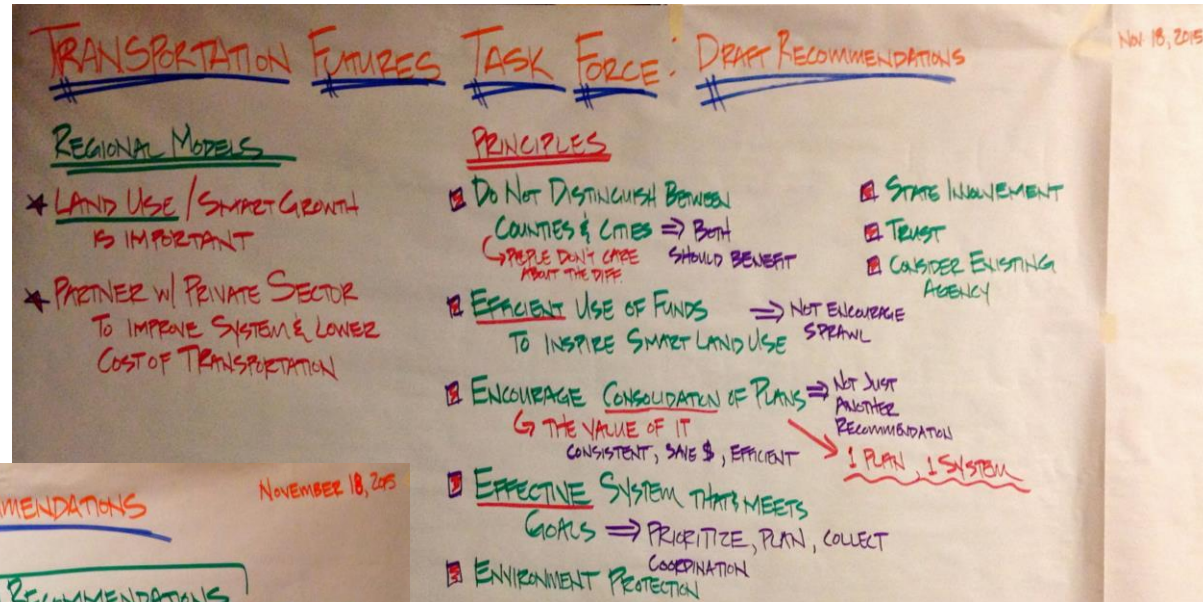 TRANSPORTATION FUTURES TASK FORCE: DRAFT RECOMMENDATIONS
Nov 18, 2015
REGIONAL MODELS
LAND USE / SMART GROWTH
IS IMPORTANT
PARTNER W/ PRIVATE SECTOR
TO IMPROVE SYSTEM & LOWER
COST OF TRANSPORTATION
PRINCIPLES
DO NOT DISTINGUISH BETWEEN
COUNTIES & CITIES ⇒ BOTH
SHOULD BENEFIT
↳ PEOPLE DON'T CARE
ABOUT THE DIFF.
EFFICIENT USE OF FUNDS ⇒ NOT ENCOURAGE
SPRAWL
TO INSPIRE SMART LAND USE
ENCOURAGE CONSOLIDATION OF PLANS ⇒ NOT JUST
ANOTHER
RECOMMENDATION
↳ THE VALUE OF IT
CONSISTENT, SAVE $, EFFICIENT
1 PLAN, 1 SYSTEM
EFFECTIVE SYSTEM THAT'S MEETS
GOALS ⇒ PRIORITIZE, PLAN, COLLECT
COORDINATION
ENVIRONMENT PROTECTION
STATE INVOLVEMENT
TRUST
CONSIDER EXISTING
AGENCY
MMENDATIONS
NOVEMBER 18, 2015
RECOMMENDATIONS